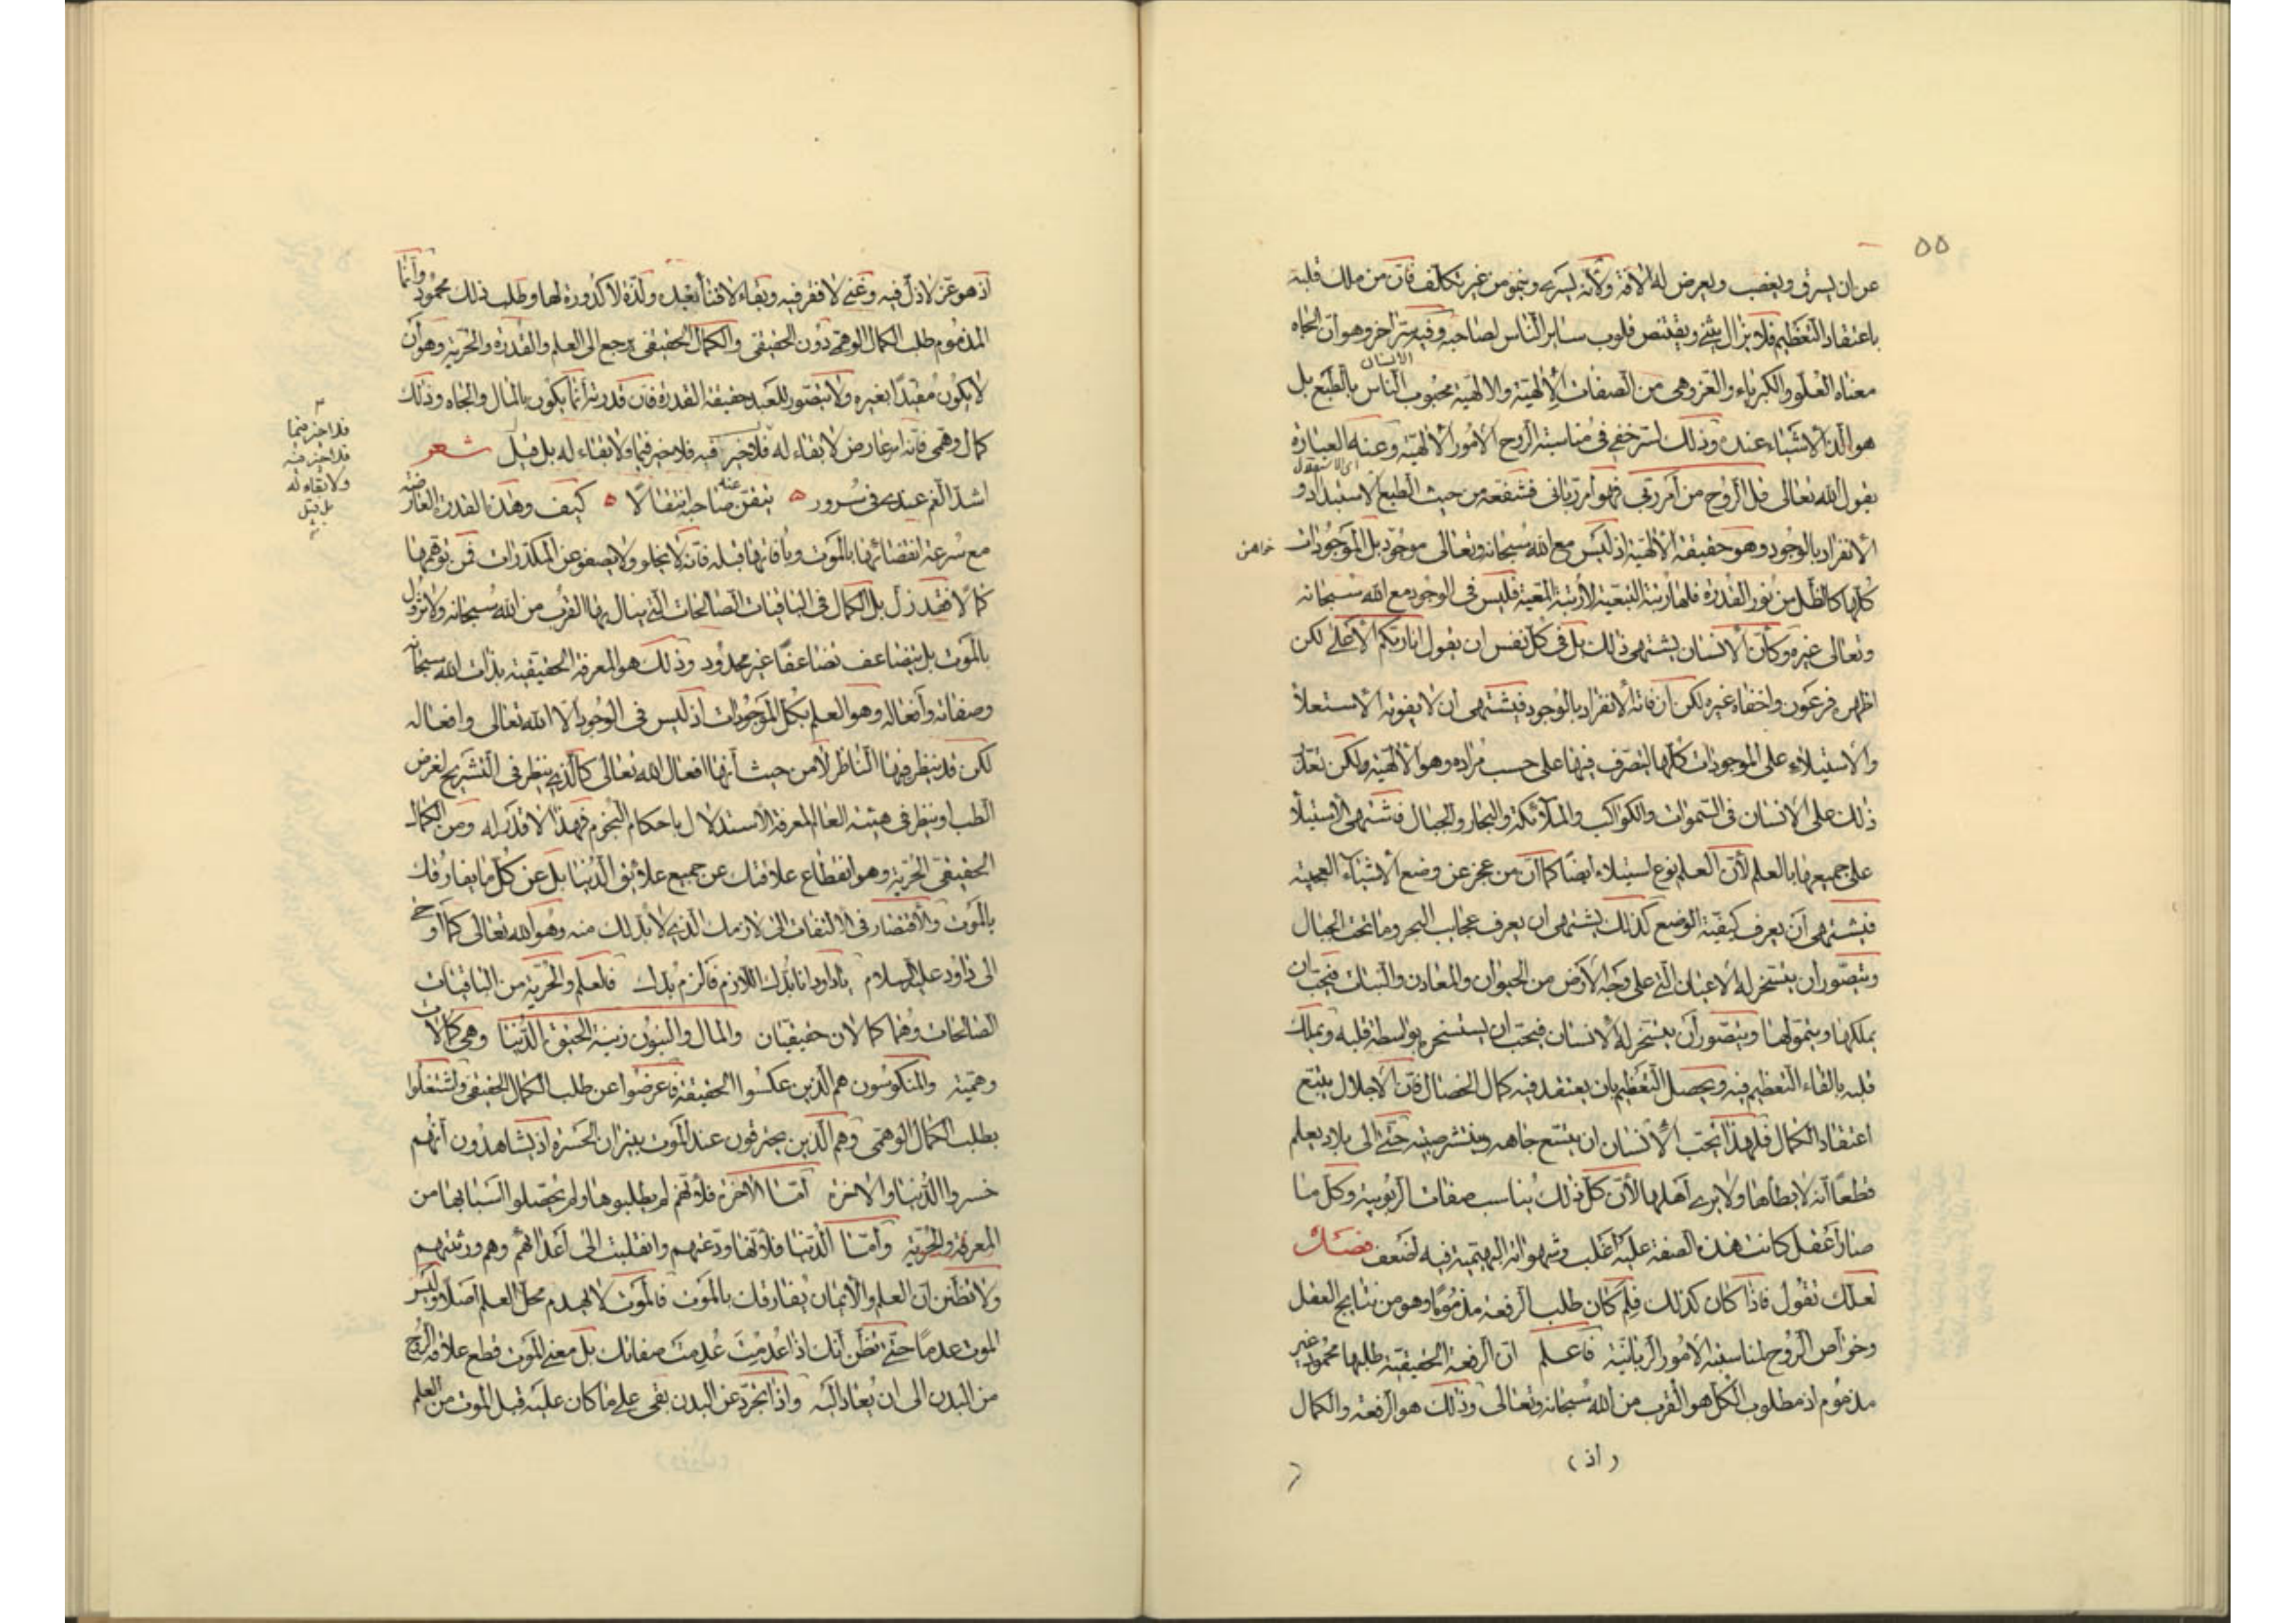 ٥٥
عن ان يسرق ويغصب ويعرض له الآفة ولانه يسري وينمو من غير تكلف فان من ملك قلبه
باعتقاد التعظيم فلا يزال يثني ويقتنص قلوب ساير الناس لصاحبه وفيه سر آخر وهو ان الجاه
معناه العلو والكبرياء والعز وهي من الصفات الالهية والالهية محبوب الناس بالطبع بل
الانسان
هو الذ الاشياء عنده وذلك لسر خفي في مناسبة الروح الامور الالهية وعنه العبارة
بقول الله تعالى قل الروح من امر ربي فهو امر رباني فشقعه من حيث الطبع الاستبداد و
اي الاستقلال
الانفراد بالوجود وهو حقيقة الالهية اذ ليس مع الله سبحانه وتعالى موجود بل الموجودات
كلها كالظل من نور القدرة فلها رتبة التبعية لا رتبة المعية فليس في الوجود مع الله سبحانه
وتعالى غيره وكأن الانسان يشتهي ذلك بل في كل نفس ان يقول انا ربكم الاعلى لكن
اظهره فرعون واخفاه غيره لكن ان فاته الانفراد بالوجود فيشتهي ان لا يفوته الاستعلا
والاستيلاء على الموجودات كلها ليتصرف فيها على حسب مراده وهو الالهية ولكن تعذر
ذلك على الانسان في السموات والكواكب والملائكة والبحار والجبال فاشتهى الاستيلا
على جميعها بالعلم لأن العلم نوع استيلاء ايضا كما ان من عجز عن وضع الاشياء العجيبة
فيشتهي ان يعرف كيفية الوضع كذلك يشتهي ان يعرف عجايب البحر وما تحت الجبال
ويتصور ان يتسخر له الاعيان التي على وجه الارض من الحيوان والمعادن والنبات فيحب ان
يملكها ويتمولها ويتصور ان يتسخر له الانسان فيحب ان يستسخره بواسطة قلبه ويملك
قلبه بالقاء التعظيم فيه ويحصل التعظيم بان يعتقد فيه كمال الخصال فان الاجلال يتبع
اعتقاد الكمال فلهذا يحب الانسان ان يتسع جاهه وينتشر صيته حتى الى بلاد يعلم
قطعا انه لا يطأها ولا يرى اهلها لأن كل ذلك يناسب صفات الربوبية وكل ما
صار اعقل كانت هذه الصفة عليه اغلب وشهواته البهيمية فيه اضعف فصل
لعلك تقول فاذا كان كذلك فلم كان طلب الرفعة مذموما وهو من نتايج العقل
وخواص الروح لمناسبته الامور الربانية فاعلم ان الرفعة الحقيقية طلبها محمود غير
مذموم اذ مطلوب الكل هو القرب من الله سبحانه وتعالى وذلك هو الرفعة والكمال
(اذ)
اذ هو عز لا ذل فيه وغنى لا فقر فيه وبقاء لا فناء بعده ولذة لا كدورة لها وطلب ذلك محمود وانما
المذموم طلب الكمال الوهمي دون الحقيقي والكمال الحقيقي يرجع الى العلم والقدرة والحرية وهو ان
لا يكون مقيدا بغيره ولا يتصور للعبد حقيقة القدرة فان قدرته انما يكون بالمال والجاه وذلك
كمال وهمي فانه امر عارض لا بقاء له فلا خير فيه فلا خير فيما ولا بقاء له بل قيل شعر
فلا خير فيما
فلا خير فيه
ولا بقاء له
بل قيل
اشد الغم عندي في سرور ه تيقن عنه صاحبه انتقالا ه كيف وهذه القدرة العارضة
مع سرعة انقضائها بالموت وبآفاتها قبله فانه لا يخلو ولا يصفو عن المكدرات فمن توهمها
كمالا فقد زل بل الكمال في الباقيات الصالحات التي ينال بها القرب من الله سبحانه ولا تزول
بالموت بل يتضاعف تضاعفا غير محدود وذلك هو المعرفة الحقيقية بذات الله سبحانه
وصفاته وافعاله وهو العلم بكل الموجودات اذ ليس في الوجود الا الله تعالى وافعاله
لكن قد ينظر فيها الناظر لا من حيث انها افعال الله تعالى كالذي ينظر في التشريح لغرض
الطب او ينظر في هيئة العالم لمعرفة الاستدلال باحكام النجوم فهذا لا قدر له ومن الكمال
الحقيقي الحرية وهو انقطاع علاقتك عن جميع علائق الدنيا بل عن كل ما يفارقك
بالموت والاقتصار في الالتفات الى لازمك الذي لا بد لك منه وهو الله تعالى كما اوحى
الى داود عليه السلام يا داود انا بدك اللازم فالزم بدك فالعلم والحرية من الباقيات
الصالحات وهما كمالان حقيقيان والمال والبنون زينة الحيوة الدنيا وهي كمالات
وهمية والمنكوسون هم الذين عكسوا الحقيقة فاعرضوا عن طلب الكمال الحقيقي واشتغلوا
بطلب الكمال الوهمي وهم الذين يحترقون عند الموت بنيران الحسرة اذ يشاهدون انهم
خسروا الدنيا والاخرة اما الآخرة فلانهم لم يطلبوها ولم يحصلوا اسبابها من
المعرفة والحرية واما الدنيا فلانها ودعتهم وانقلبت الى اعدائهم وهم ورثتهم
ولا تظنن ان العلم والايمان يفارقك بالموت فالموت لا يهدم محل العلم اصلا وليس
الموت عدما حتى تظن انك اذا عدمت عدمت صفاتك بل معنى الموت قطع علاقة الروح
من البدن الى ان يعاد اليه واذا تجرد عن البدن بقي على ما كان عليه قبل الموت من العلم